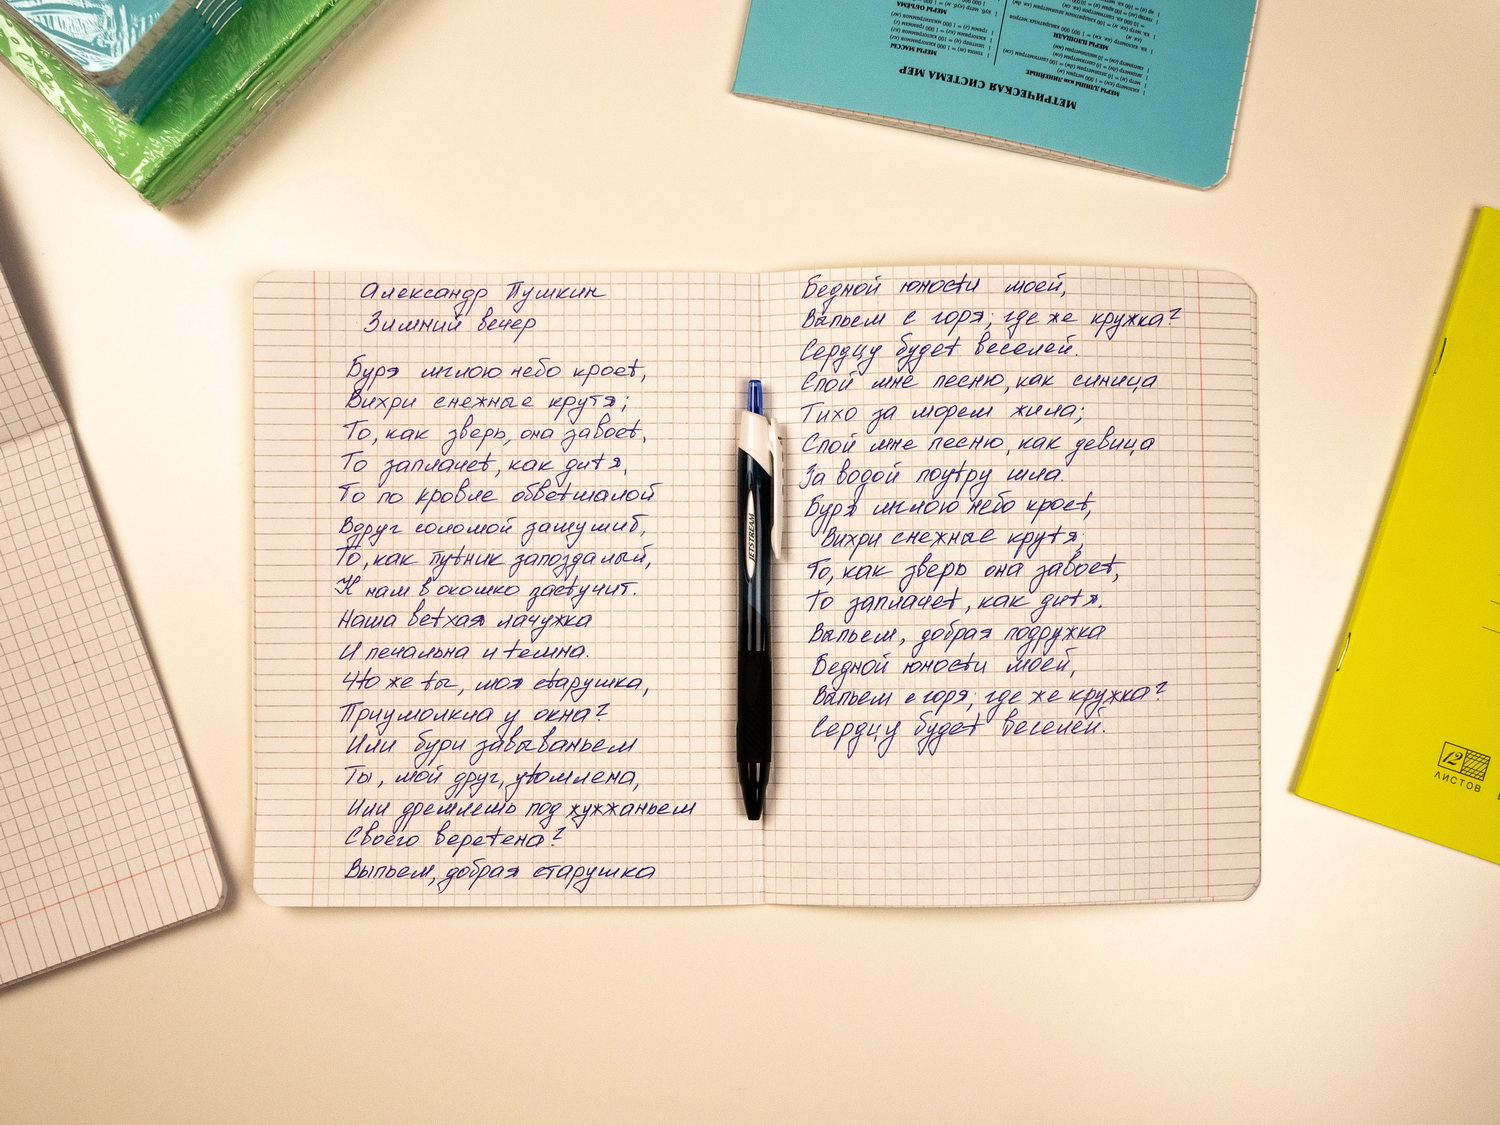 Александр Пушкин
Зимний вечер
Буря мглою небо кроет,
Вихри снежные крутя;
То, как зверь, она завоет,
То заплачет, как дитя,
То по кровле обветшалой
Вдруг соломой зашумит,
То, как путник запоздалый,
К нам в окошко застучит.
Наша ветхая лачужка
И печальна и темна.
Что же ты, моя старушка,
Приумолкла у окна?
Или бури завываньем
Ты, мой друг, утомлена,
Или дремлешь под жужжаньем
Своего веретена?
Выпьем, добрая старушка
Бедной юности моей,
Выпьем с горя; где же кружка?
Сердцу будет веселей.
Спой мне песню, как синица
Тихо за морем жила;
Спой мне песню, как девица
За водой поутру шла.
Буря мглою небо кроет,
Вихри снежные крутя;
То, как зверь она завоет,
То заплачет, как дитя.
Выпьем, добрая подружка
Бедной юности моей,
Выпьем с горя; где же кружка?
Сердцу будет веселей.
JETSTREAM
МЕТРИЧЕСКАЯ СИСТЕМА МЕР
МЕРЫ ДЛИНЫ или ЛИНЕЙНЫЕ
МЕРЫ МАССЫ
МЕРЫ ПЛОЩАДИ
МЕРЫ ОБЪЕМА
12
ЛИСТОВ